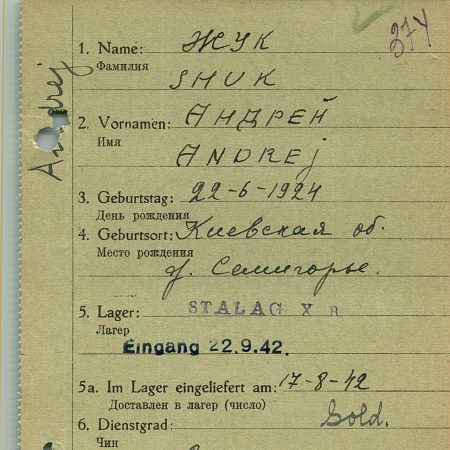 374
1. Name: ЖУК
Фамилия
SHUK
2. Vornamen: АНДРЕЙ
Имя
ANDREj
Andrej
3. Geburtstag: 22-6-1924
День рождения
4. Geburtsort: Киевская об.
Место рождения
д. Семигорье.
5. Lager: STALAG X B
Лагер
Eingang 22.9.42.
5a. Im Lager eingeliefert am: 17-8-42
Доставлен в лагер (число)
6. Dienstgrad: Sold.
Чин